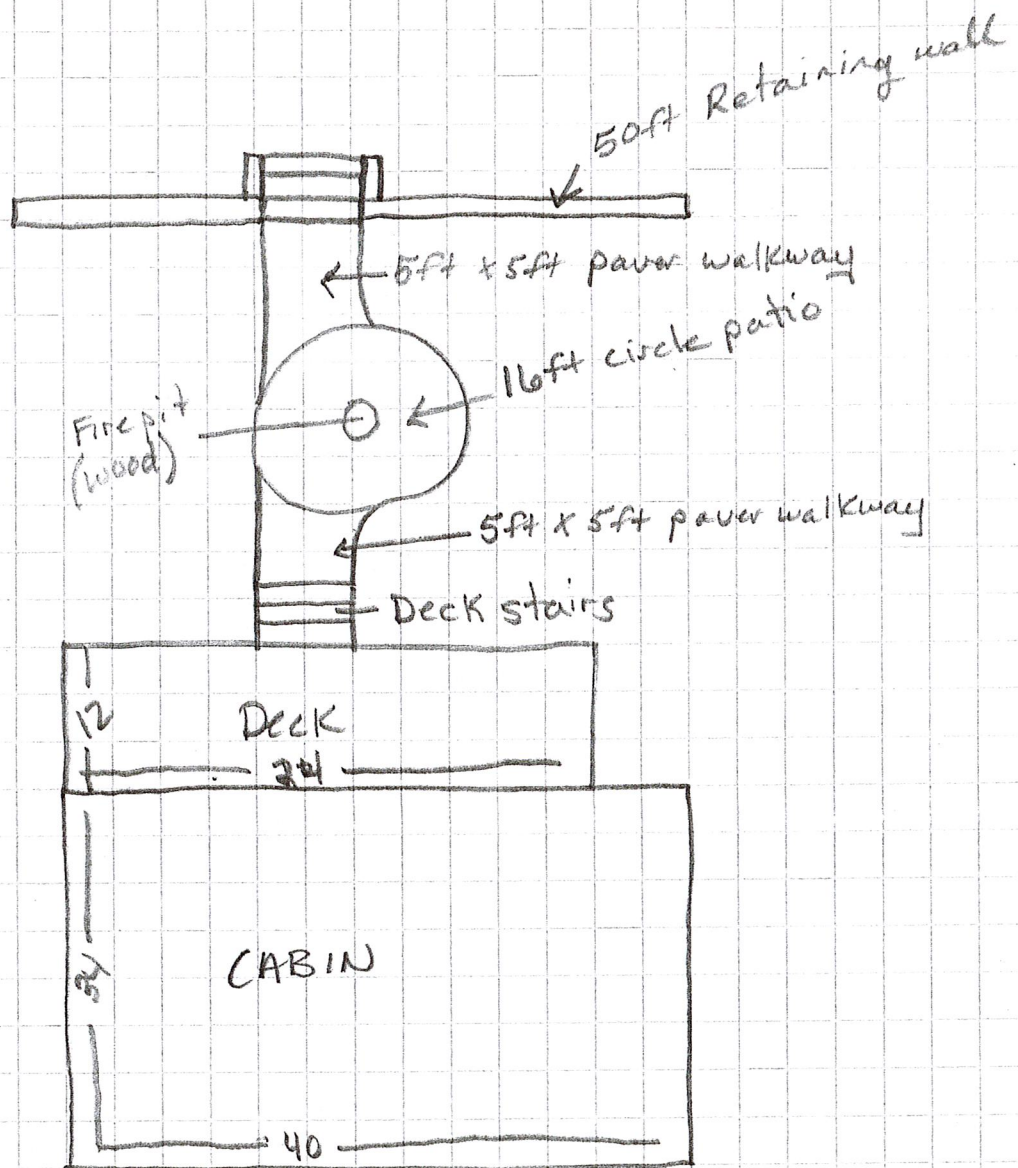 50ft Retaining wall
5ft x 5ft paver walkway
16ft circle patio
Fire pit
(wood)
5ft x 5ft paver walkway
Deck stairs
12
Deck
CABIN
40